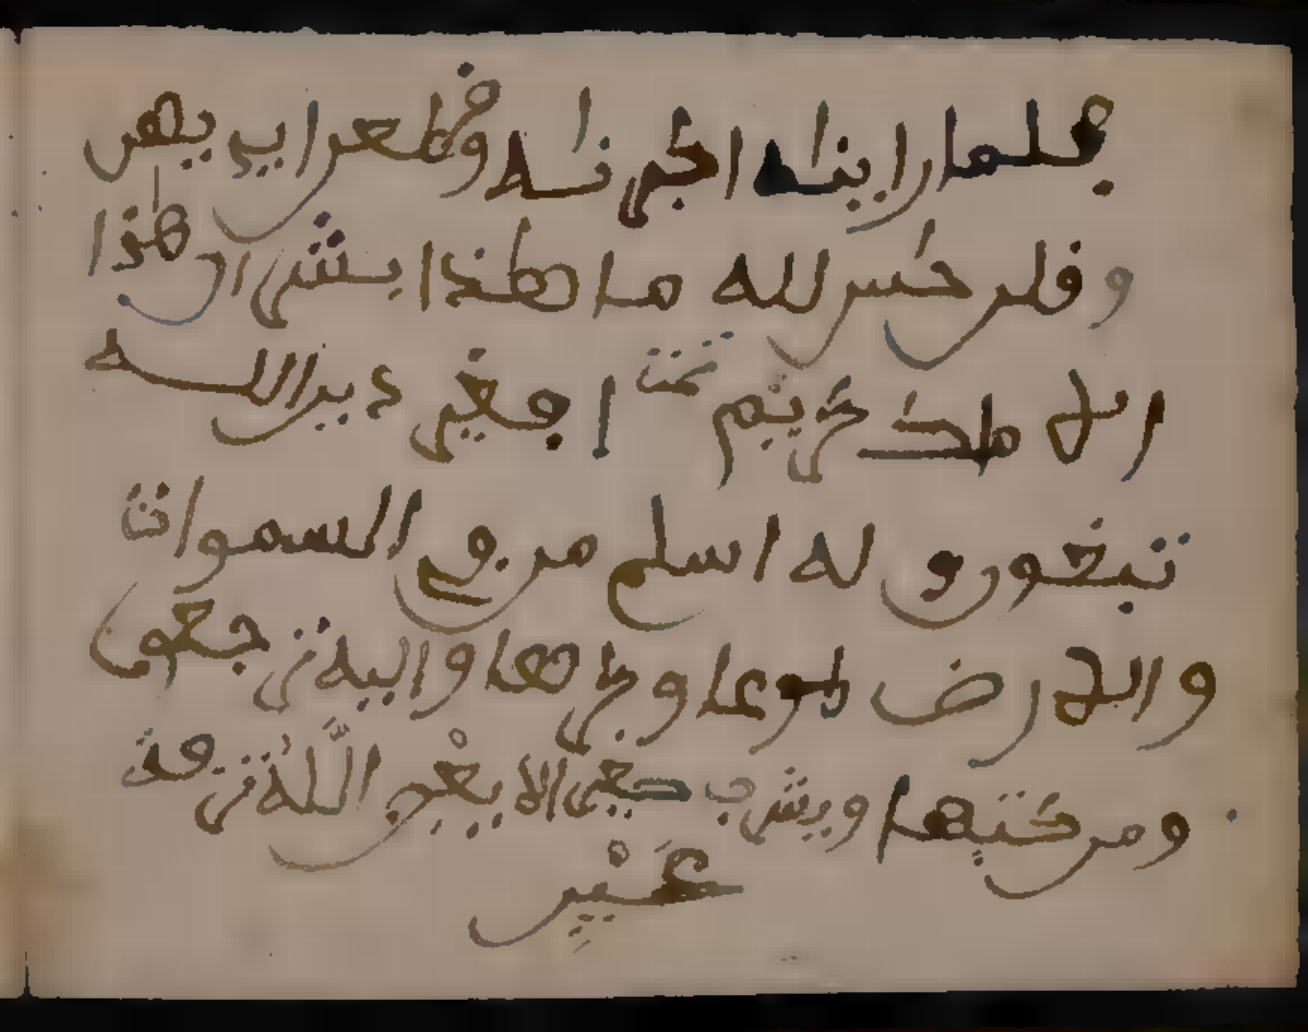 فلما راينه اكبرنه وقطعن ايديهن
وقلن حش لله ما هذا بشرا ان هذا
الا ملك كريم تمت افغير دين الله
تبغون وله اسلم من في السموات
والارض طوعا وكرها واليه ترجعون
ومن كتبها ويشرب الا الله